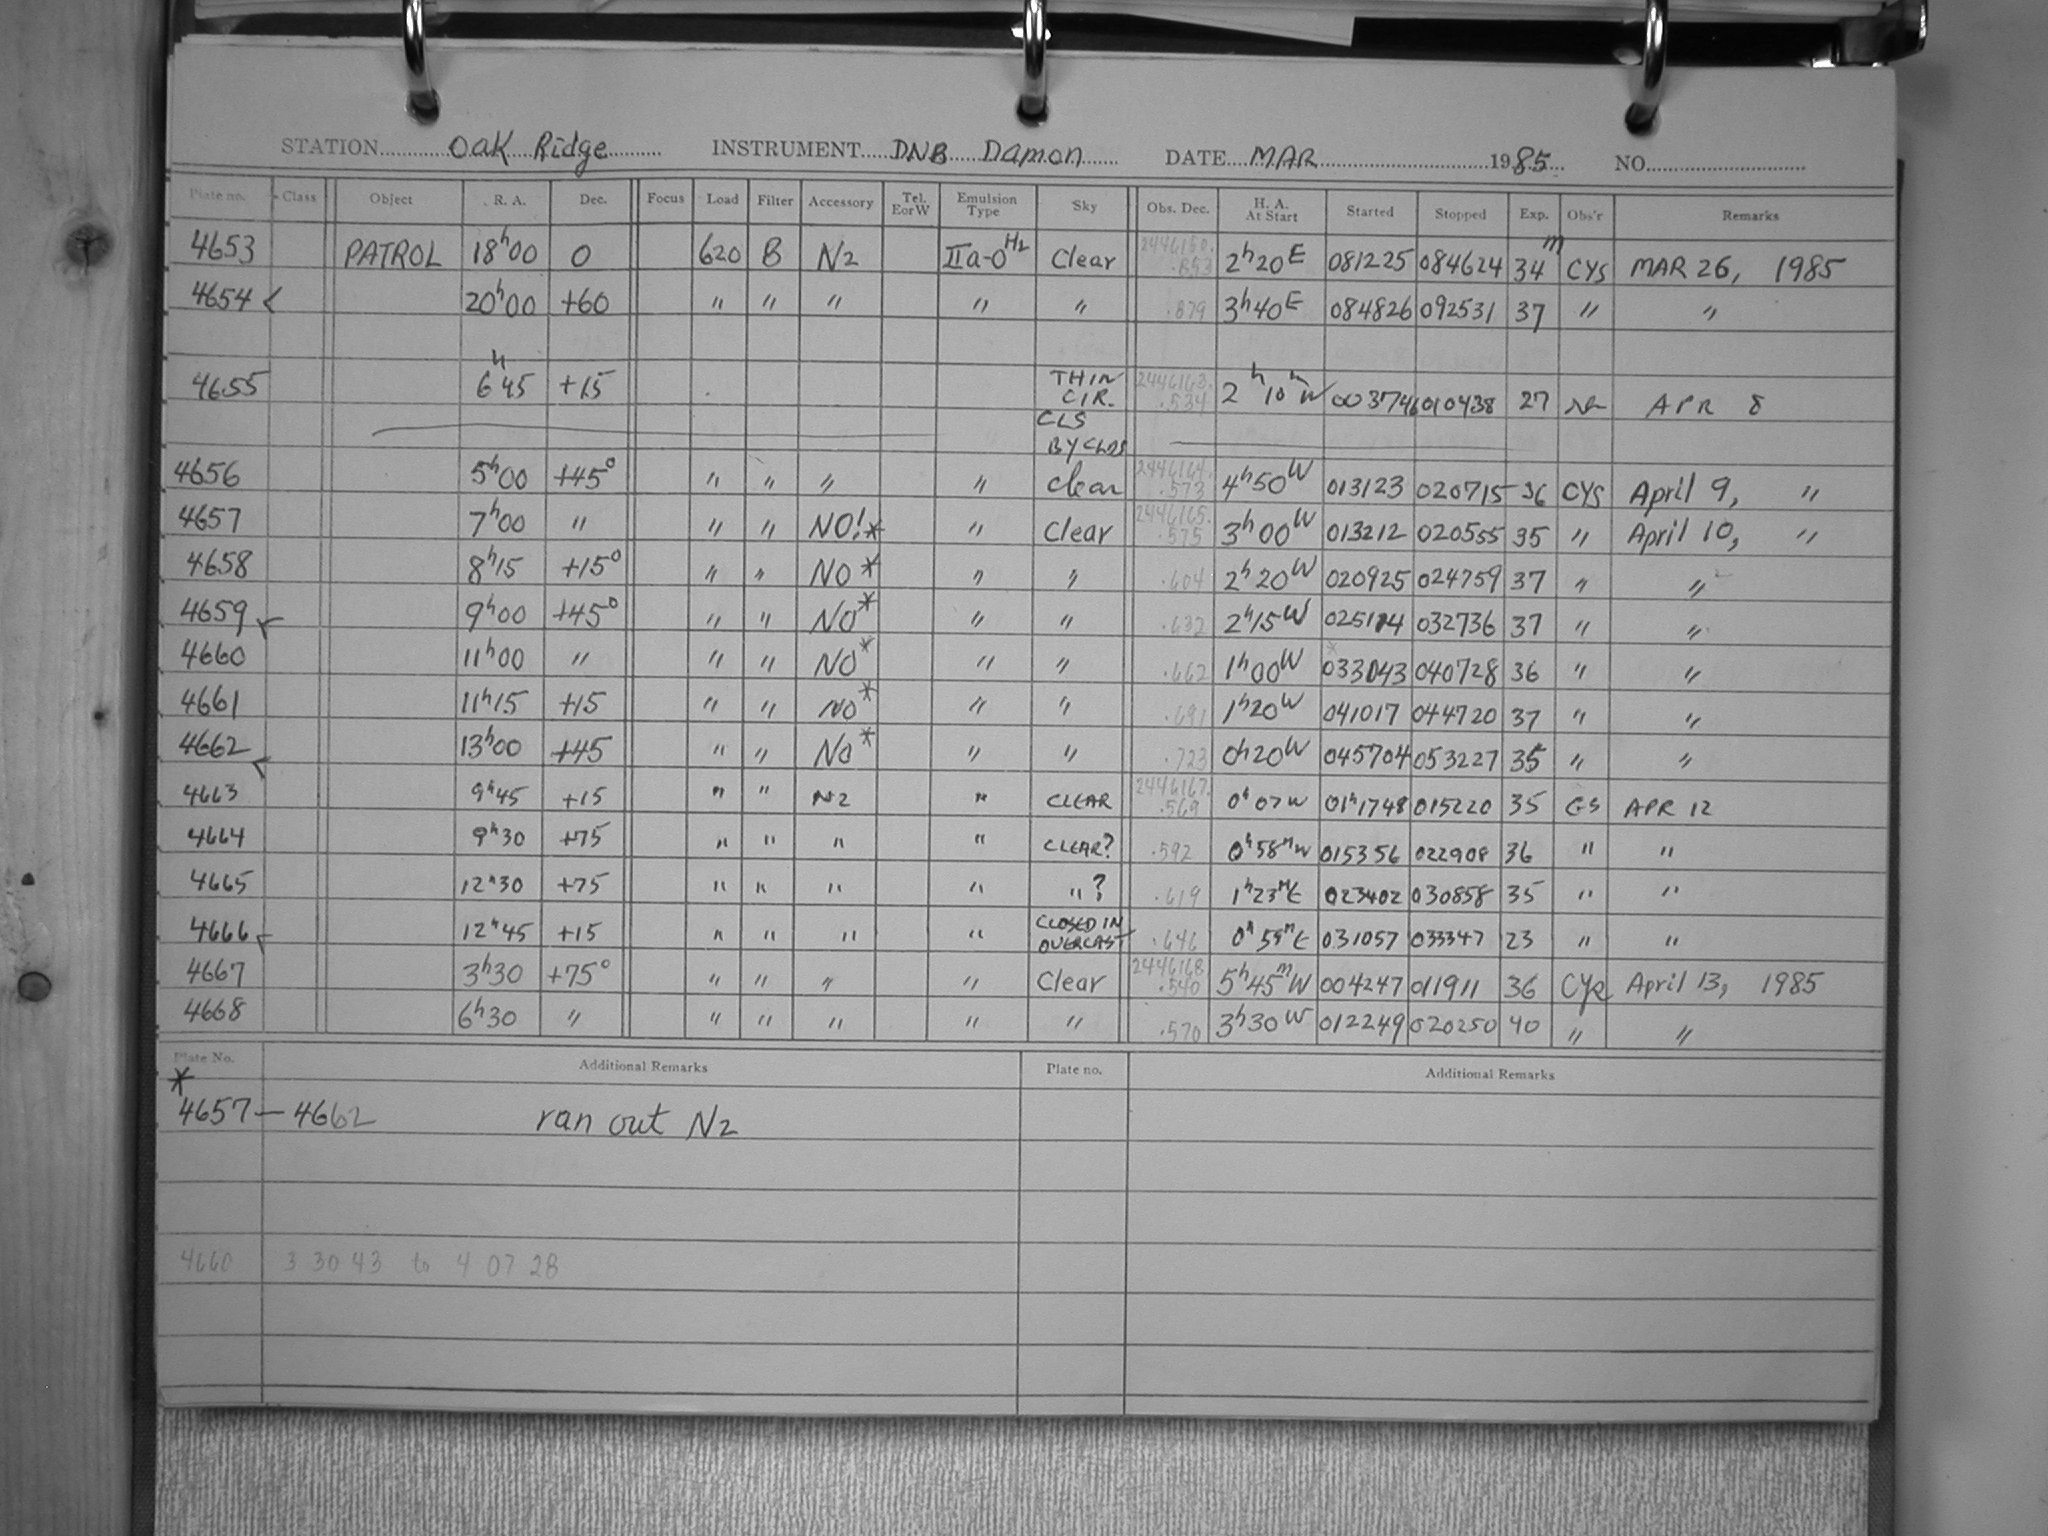 STATION Oak Ridge INSTRUMENT DNB Damon DATE MAR 1985 NO.
Plate no. Class Object R. A. Dec. Focus Load Filter Accessory Tel. E or W Emulsion Type Sky Obs. Dec. H. A. At Start Started Stopped Exp. Obs'r Remarks
4653 PATROL 18h00 0 620 B N2 IIa-O H2 Clear 2446150. .853 2h20E 081225 084624 34m CYS MAR 26, 1985
4654 20h00 +60 " " " " " .879 3h40E 084826 092531 37 " "
4655 6h45 +15 THIN CIR. 2446163. .534 2h10mW 003746 010438 27 APR 8
CLS BY CLDS
4656 5h00 +45° " " " " Clear 2446164. .573 4h50W 013123 020715 36 CYS April 9, "
4657 7h00 " " " NO!* " Clear 2446165. .575 3h00W 013212 020555 35 " April 10, "
4658 8h15 +15° " " NO* " " .604 2h20W 020925 024759 37 " "
4659 9h00 +45° " " NO* " " .632 2h15W 025114 032736 37 " "
4660 11h00 " " " NO* " " .662 1h00W *033043 040728 36 " "
4661 11h15 +15 " " NO* " " .691 1h20W 041017 044720 37 " "
4662 13h00 +45 " " NO* " " .723 0h20W 045704 053227 35 " "
4663 9h45 +15 " " N2 " CLEAR 2446167. .569 0h07W 01h1748 015220 35 GS APR 12
4664 9h30 +75 " " " " CLEAR? .592 0h58mW 015356 022908 36 " "
4665 12h30 +75 " " " " "? .619 1h23mE 023402 030858 35 " "
4666 12h45 +15 " " " " CLOSED IN OVERCAST .646 0h59mE 031057 033347 23 " "
4667 3h30 +75° " " " " Clear 2446168 .540 5h45mW 004247 011911 36 April 13, 1985
4668 6h30 " " " " " " .570 3h30W 012249 020250 40 " "
Plate No. Additional Remarks Plate no. Additional Remarks
*
4657 — 4662 ran out N2
4660 3 30 43 to 4 07 28